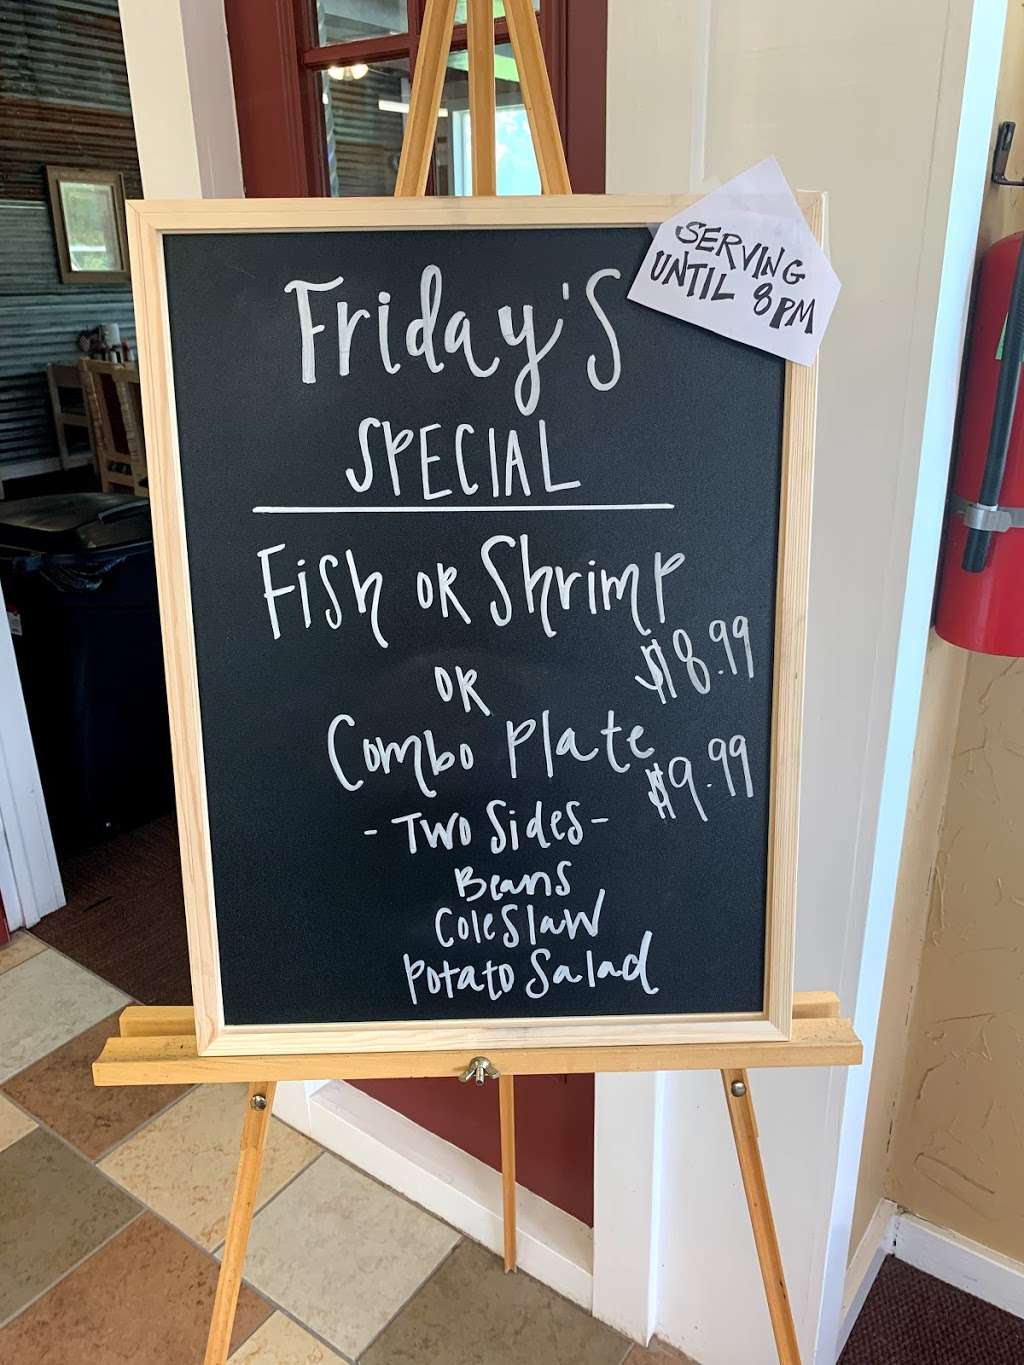 Friday's
SPECIAL
SERVING
UNTIL 8PM
Fish OR Shrimp
$8.99
OR
Combo Plate
$9.99
- Two Sides -
Beans
Coleslaw
Potato Salad